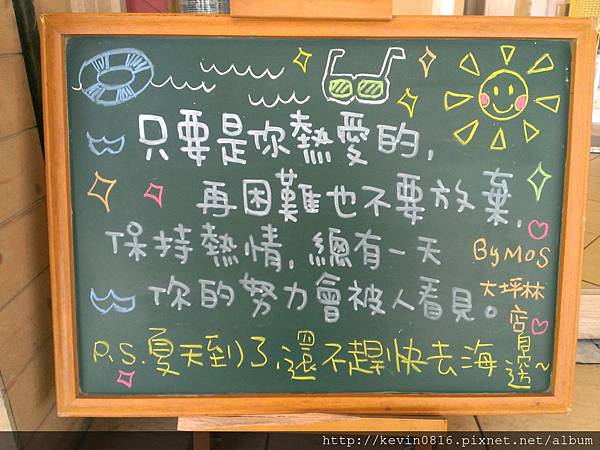 只要是你熱愛的,
再困難也不要放棄,
保持熱情,總有一天
你的努力會被人看見。
By MOS
大坪林
店
P.S.夏天到了,還不趕快去海
邊~
http://kevin0816.pixnet.net/album